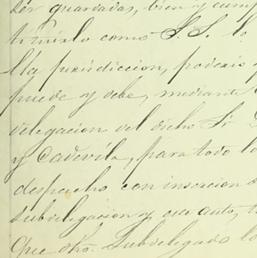 ser guardadas, bien y cump
terminlo como S. S. lo
lla jurisdiccion, poderio y
puede y debe, mediante
delegacion del dicho Sr. D
y Cadevila, para todo lo
despacho con insercion d
subdelegacion y su auto, t
que dho. Subdelegado lo